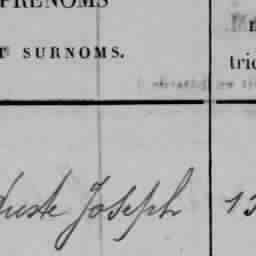 PRENOMS
ET SURNOMS.
tric
uste Joseph 13